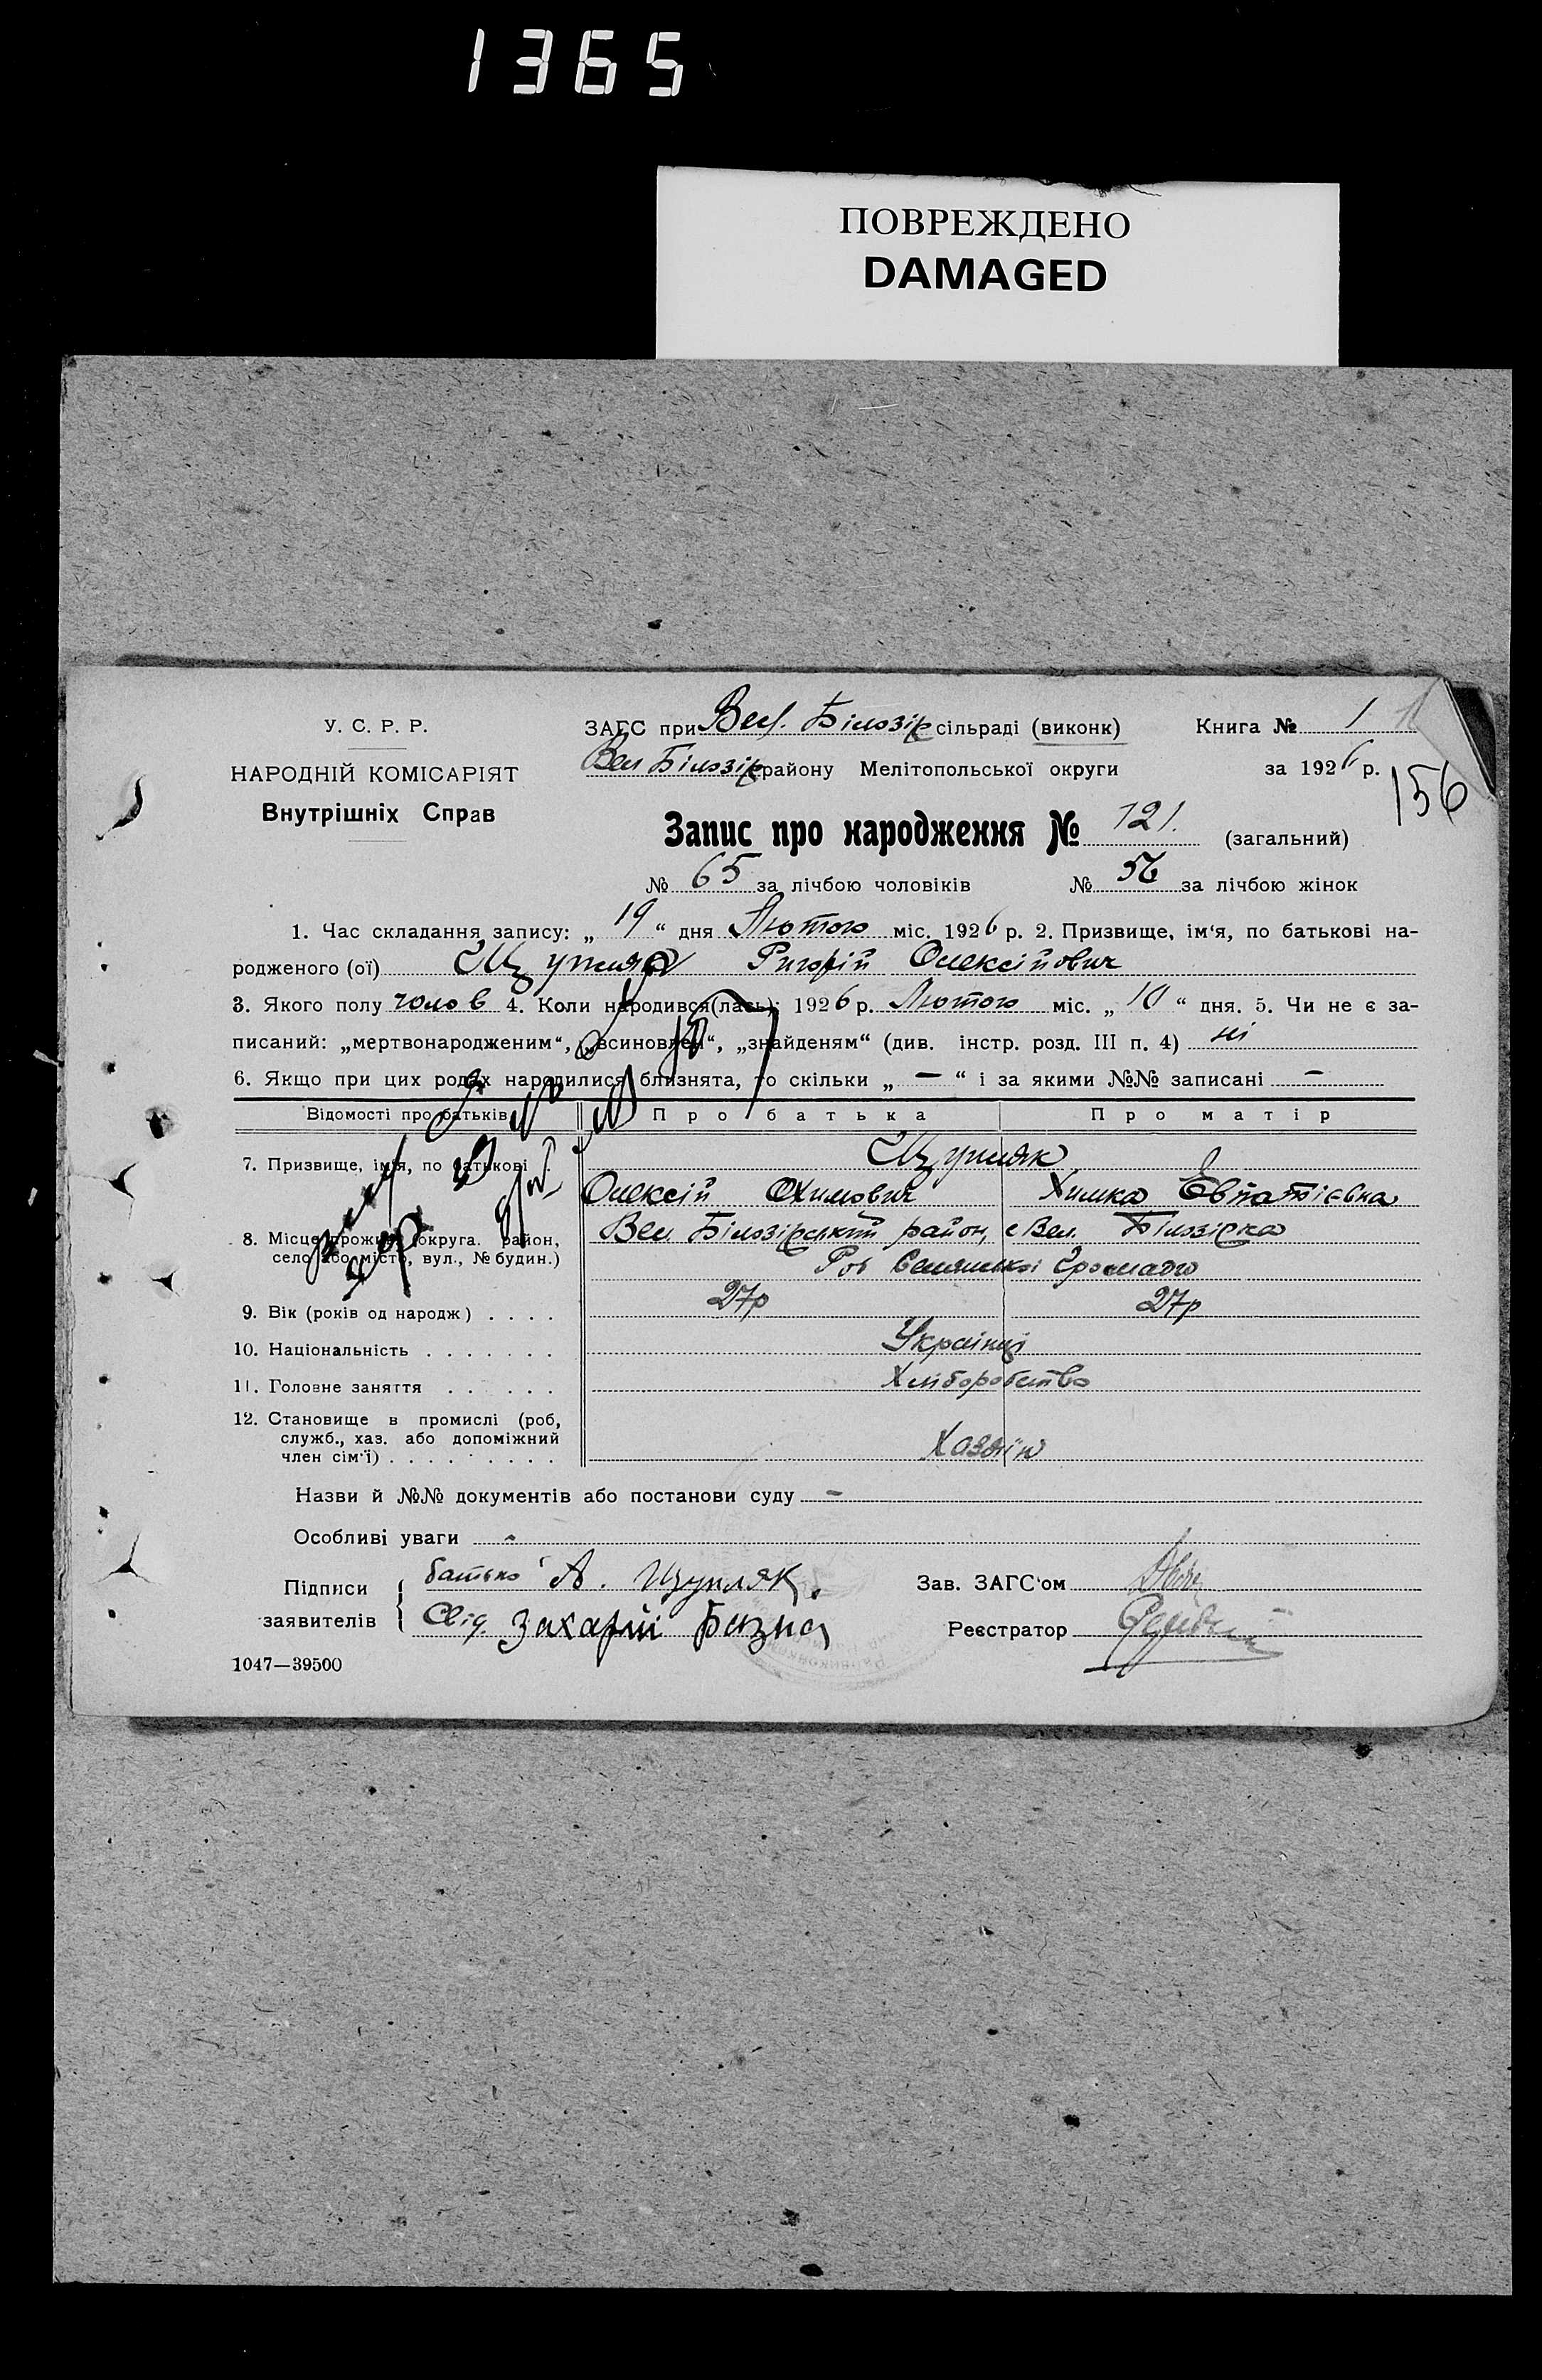 1365
ПОВРЕЖДЕНО
DAMAGED
У. С. Р. Р.
НАРОДНІЙ КОМІСАРІЯТ
Внутрішніх Справ
ЗАГС при Вел. Білозір сільраді (виконк) Книга № 1
Вел Білозір району Мелітопольської округи за 1926 р.
156
Запис про народження № 121. (загальний)
№ 65 за лічбою чоловіків № 56 за лічбою жінок
1. Час складання запису: „ 19 “ дня Лютого міс. 1926 р. 2. Призвище, ім‘я, по батькові на-
родженого (ої) Щупляк Григорій Олексійович
3. Якого полу чолов 4. Коли народився(лась): 1926 р. Лютого міс. „ 10 “ дня. 5. Чи не є за-
писаний: „мертвонародженим“, „всиновлен“, „знайденям“ (див. інстр. розд. III п. 4) ні
6. Якщо при цих родах народилися близнята, то скільки „ — “ і за якими №№ записані —
Відомості про батьків Про батька Про матір
7. Призвище, ім‘я, по батькові . Щупляк
Олексій Охимович Химка Евпатієвна
8. Місце прожив. (округа. район, Вел. Білозірський район, с Вел. Білозірка
село або місто, вул., № будин.) Рог Громади
9. Вік (років од народж) . . . . 27р 27р
10. Національність . . . . . . . Українці
11. Головне заняття . . . . . . Хліборобство
12. Становище в промислі (роб,
служб., хаз. або допоміжний
член сім‘ї) . . . . . . . . . Хазяїн
Назви й №№ документів або постанови суду —
Особливі уваги -
Підписи
заявителів
батько А. Щупляк.
Свід. Захарій
Зав. ЗАГС‘ом
Реєстратор
1047—39500